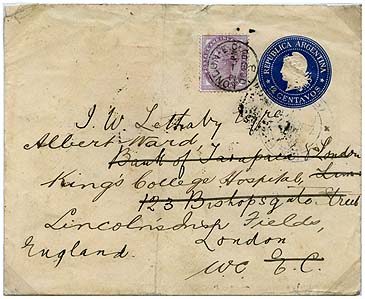 REPUBLICA ARGENTINA
CENTAVOS
LONDON
J. W. Lethaby
Albert Ward,
Bank of Tarapaca & London
King's College Hospital,
123 Bishopsgate Street
Lincoln's Inn Fields,
England.
London
W.C. E.C.